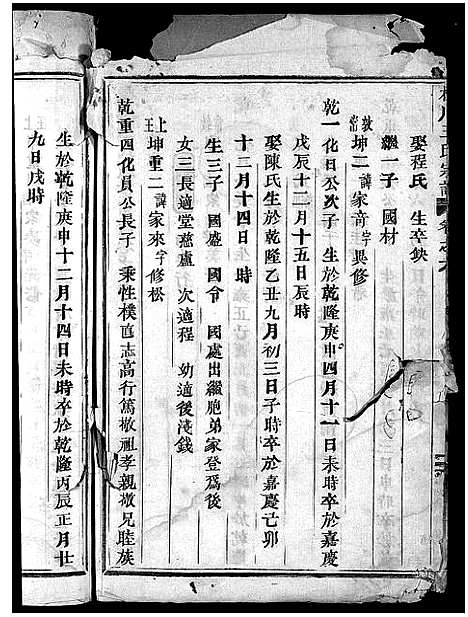 王氏宗譜
卷之九
娶程氏 生卒缺
繼一子 國材
敦常坤二諱家奇字異修
乾一化日公次子 生於乾隆庚申四月十一日未時卒於嘉慶
戊辰十二月十五日辰時
娶陳氏生於乾隆乙丑九月初三日子時卒於嘉慶丁卯
十二月十四日 時
生三子 國盛 國令 國處出繼胞弟家登為後
女三長適堂慈盧 次適程 幼適後淺錢
上王坤重二諱家來字修松
乾重四化員公長子 秉性樸直志高行篤敬祖孝親敬兄睦族
生於乾隆庚申十二月十四日未時卒於乾隆丙辰正月廿
九日戌時